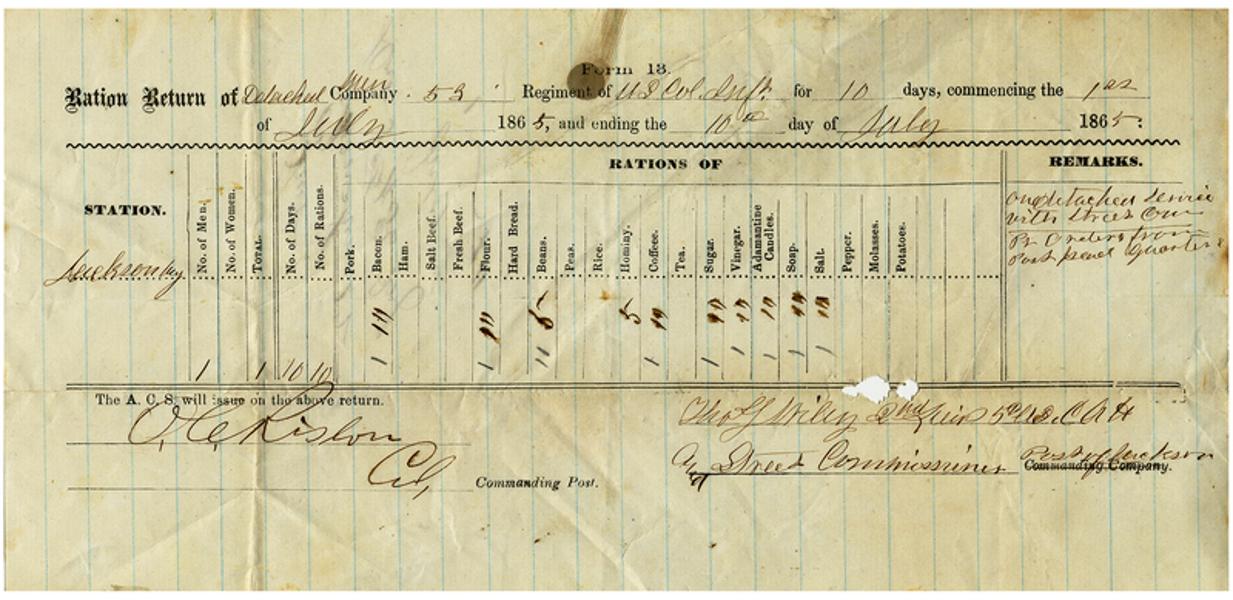 Form 13.
Ration Return of Detached Men Company. 53 Regiment of U S Col. Inft. for 10 days, commencing the 1st
of July 1865, and ending the 10th day of July 1865:
RATIONS OF
REMARKS.
STATION.
No. of Men.
No. of Women.
TOTAL.
No. of Days.
No. of Rations.
Pork.
Bacon.
Ham.
Salt Beef.
Fresh Beef.
Flour.
Hard Bread.
Beans.
Peas.
Rice.
Hominy.
Coffee.
Tea.
Sugar.
Vinegar.
Adamantine Candles.
Soap.
Salt.
Pepper.
Molasses.
Potatoes.
on detached Service
with Street Com
Pr Orders from
Post Head Quarters
1 1 10 10
The A. C. S. will issue on the above return.
O. C. Risdon
Col, Commanding Post.
Tho G Wiley 2nd 5th U.S.C.A H
Street Commissioner Post of
Commanding Company.